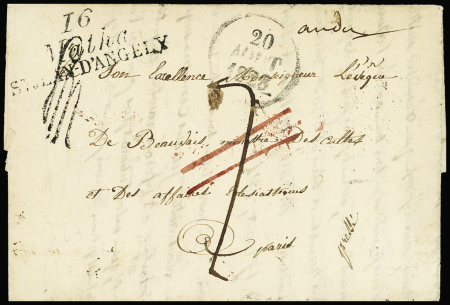 16
Matha
ST JEAN-D'ANGELY
20
AOUT
Son Excellence Monseigneur L'évêque
De Beauvais, ministre Des cultes
et Des affaires Eclésiastiques
a paris
pressé
7